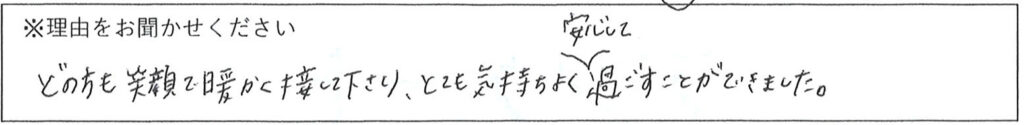 ※理由をお聞かせください
安心して
どの方も笑顔で暖かく接して下さり、とても気持ちよく過ごすことができました。